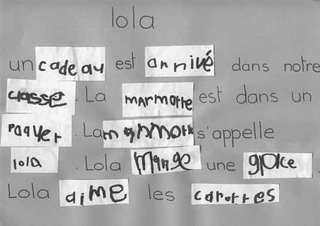 lola
un cadeau est arrivé dans notre
classe. La marmotte est dans un
paquer. La marmotte s'appelle
lola. Lola mange une glace.
Lola aime les carottes